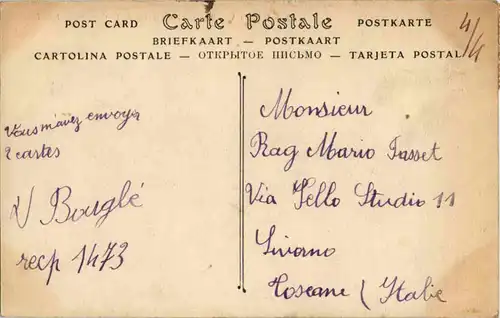 POST CARD Carte Postale POSTKARTE
BRIEFKAART — POSTKAART
CARTOLINA POSTALE — ОТКРЫТОЕ ПИСЬМО — TARJETA POSTAL
4/4
Vous m'avez envoyé
2 cartes
Bouglé
recp 1473
Monsieur
Rag Mario Fasset
Via Jello Studio 11
Livorno
Toscane (Italie